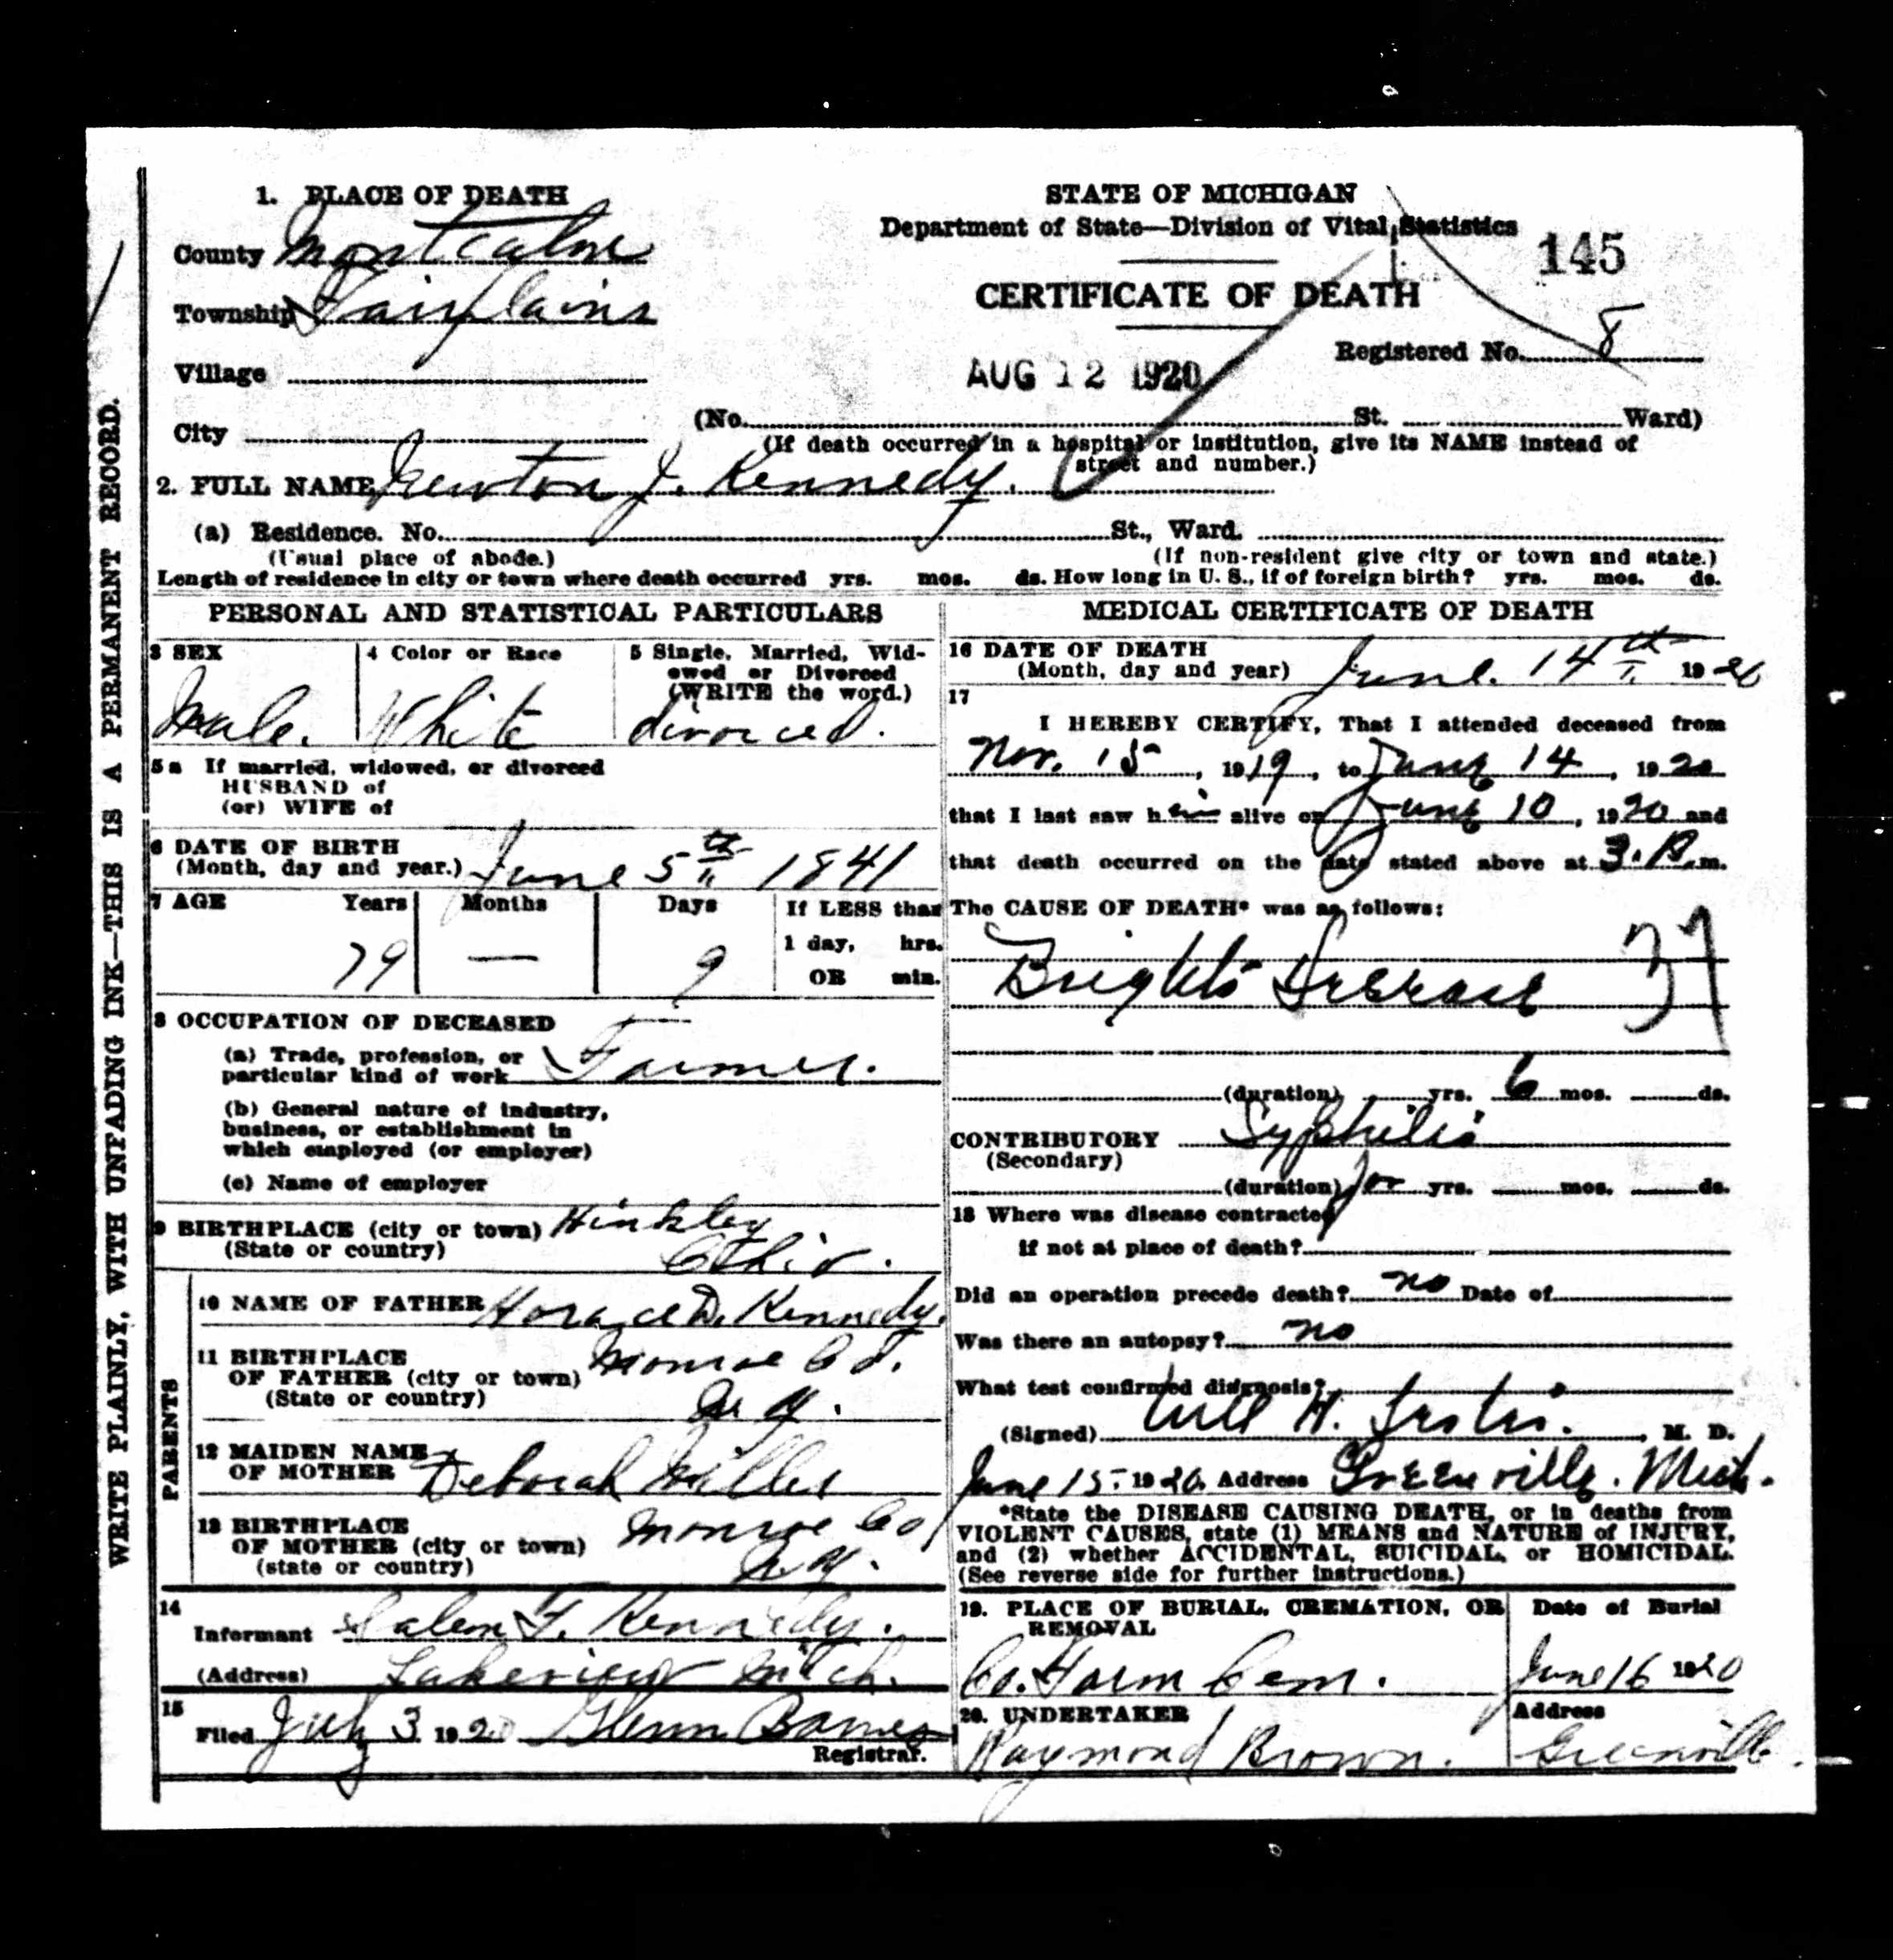 WRITE PLAINLY, WITH UNFADING INK—THIS IS A PERMANENT RECORD.
1. PLACE OF DEATH
County Montcalm
Township Fairplains
Village
City
STATE OF MICHIGAN
Department of State—Division of Vital Statistics
145
CERTIFICATE OF DEATH
Registered No. 8
AUG 12 1920
(No. St. Ward)
(If death occurred in a hospital or institution, give its NAME instead of
street and number.)
2. FULL NAME Newton J. Kennedy.
(a) Residence. No. St., Ward.
(Usual place of abode.) (If non-resident give city or town and state.)
Length of residence in city or town where death occurred yrs. mos. ds. How long in U. S., if of foreign birth? yrs. mos. ds.
PERSONAL AND STATISTICAL PARTICULARS
3 SEX
Male.
4 Color or Race
White
5 Single, Married, Wid-
owed or Divorced
(WRITE the word.)
divorced.
5a If married, widowed, or divorced
HUSBAND of
(or) WIFE of
6 DATE OF BIRTH
(Month, day and year.) June 5th 1841
7 AGE Years Months Days If LESS than
1 day, hrs.
79 — 9
OR min.
8 OCCUPATION OF DECEASED
(a) Trade, profession, or
particular kind of work Farmer.
(b) General nature of industry,
business, or establishment in
which employed (or employer)
(c) Name of employer
9 BIRTHPLACE (city or town) Hinkley
(State or country) Ohio.
PARENTS
10 NAME OF FATHER Horace D. Kennedy.
11 BIRTHPLACE
OF FATHER (city or town) Monroe Co.
(State or country) N. Y.
12 MAIDEN NAME
OF MOTHER Deborah Miller
13 BIRTHPLACE
OF MOTHER (city or town) Monroe Co
(state or country) N. Y.
14
Informant Salem F. Kennedy.
(Address) Lakeview Mich.
15
Filed July 3 1920 Glenn Barnes
Registrar.
MEDICAL CERTIFICATE OF DEATH
16 DATE OF DEATH
(Month, day and year) June. 14th 1920
17
I HEREBY CERTIFY, That I attended deceased from
Nov. 15, 1919, to June 14, 1920
that I last saw him alive on June 10, 1920 and
that death occurred on the date stated above at 3. P. m.
The CAUSE OF DEATH* was as follows:
Brights Disease
37
(duration) yrs. 6 mos. ds.
CONTRIBUTORY Syphilis
(Secondary)
(duration) yrs. mos. ds.
18 Where was disease contracted
if not at place of death?
Did an operation precede death? no Date of
Was there an autopsy? no
What test confirmed diagnosis?
(Signed) Will H. , M. D.
June 15 1920. Address Greenville. Mich.
*State the DISEASE CAUSING DEATH, or in deaths from
VIOLENT CAUSES, state (1) MEANS and NATURE of INJURY,
and (2) whether ACCIDENTAL, SUICIDAL, or HOMICIDAL.
(See reverse side for further instructions.)
19. PLACE OF BURIAL, CREMATION, OR
REMOVAL
Co. Farm Cem.
Date of Burial
June 16 1920
20. UNDERTAKER
Raymond Brown.
Address
Greenville.